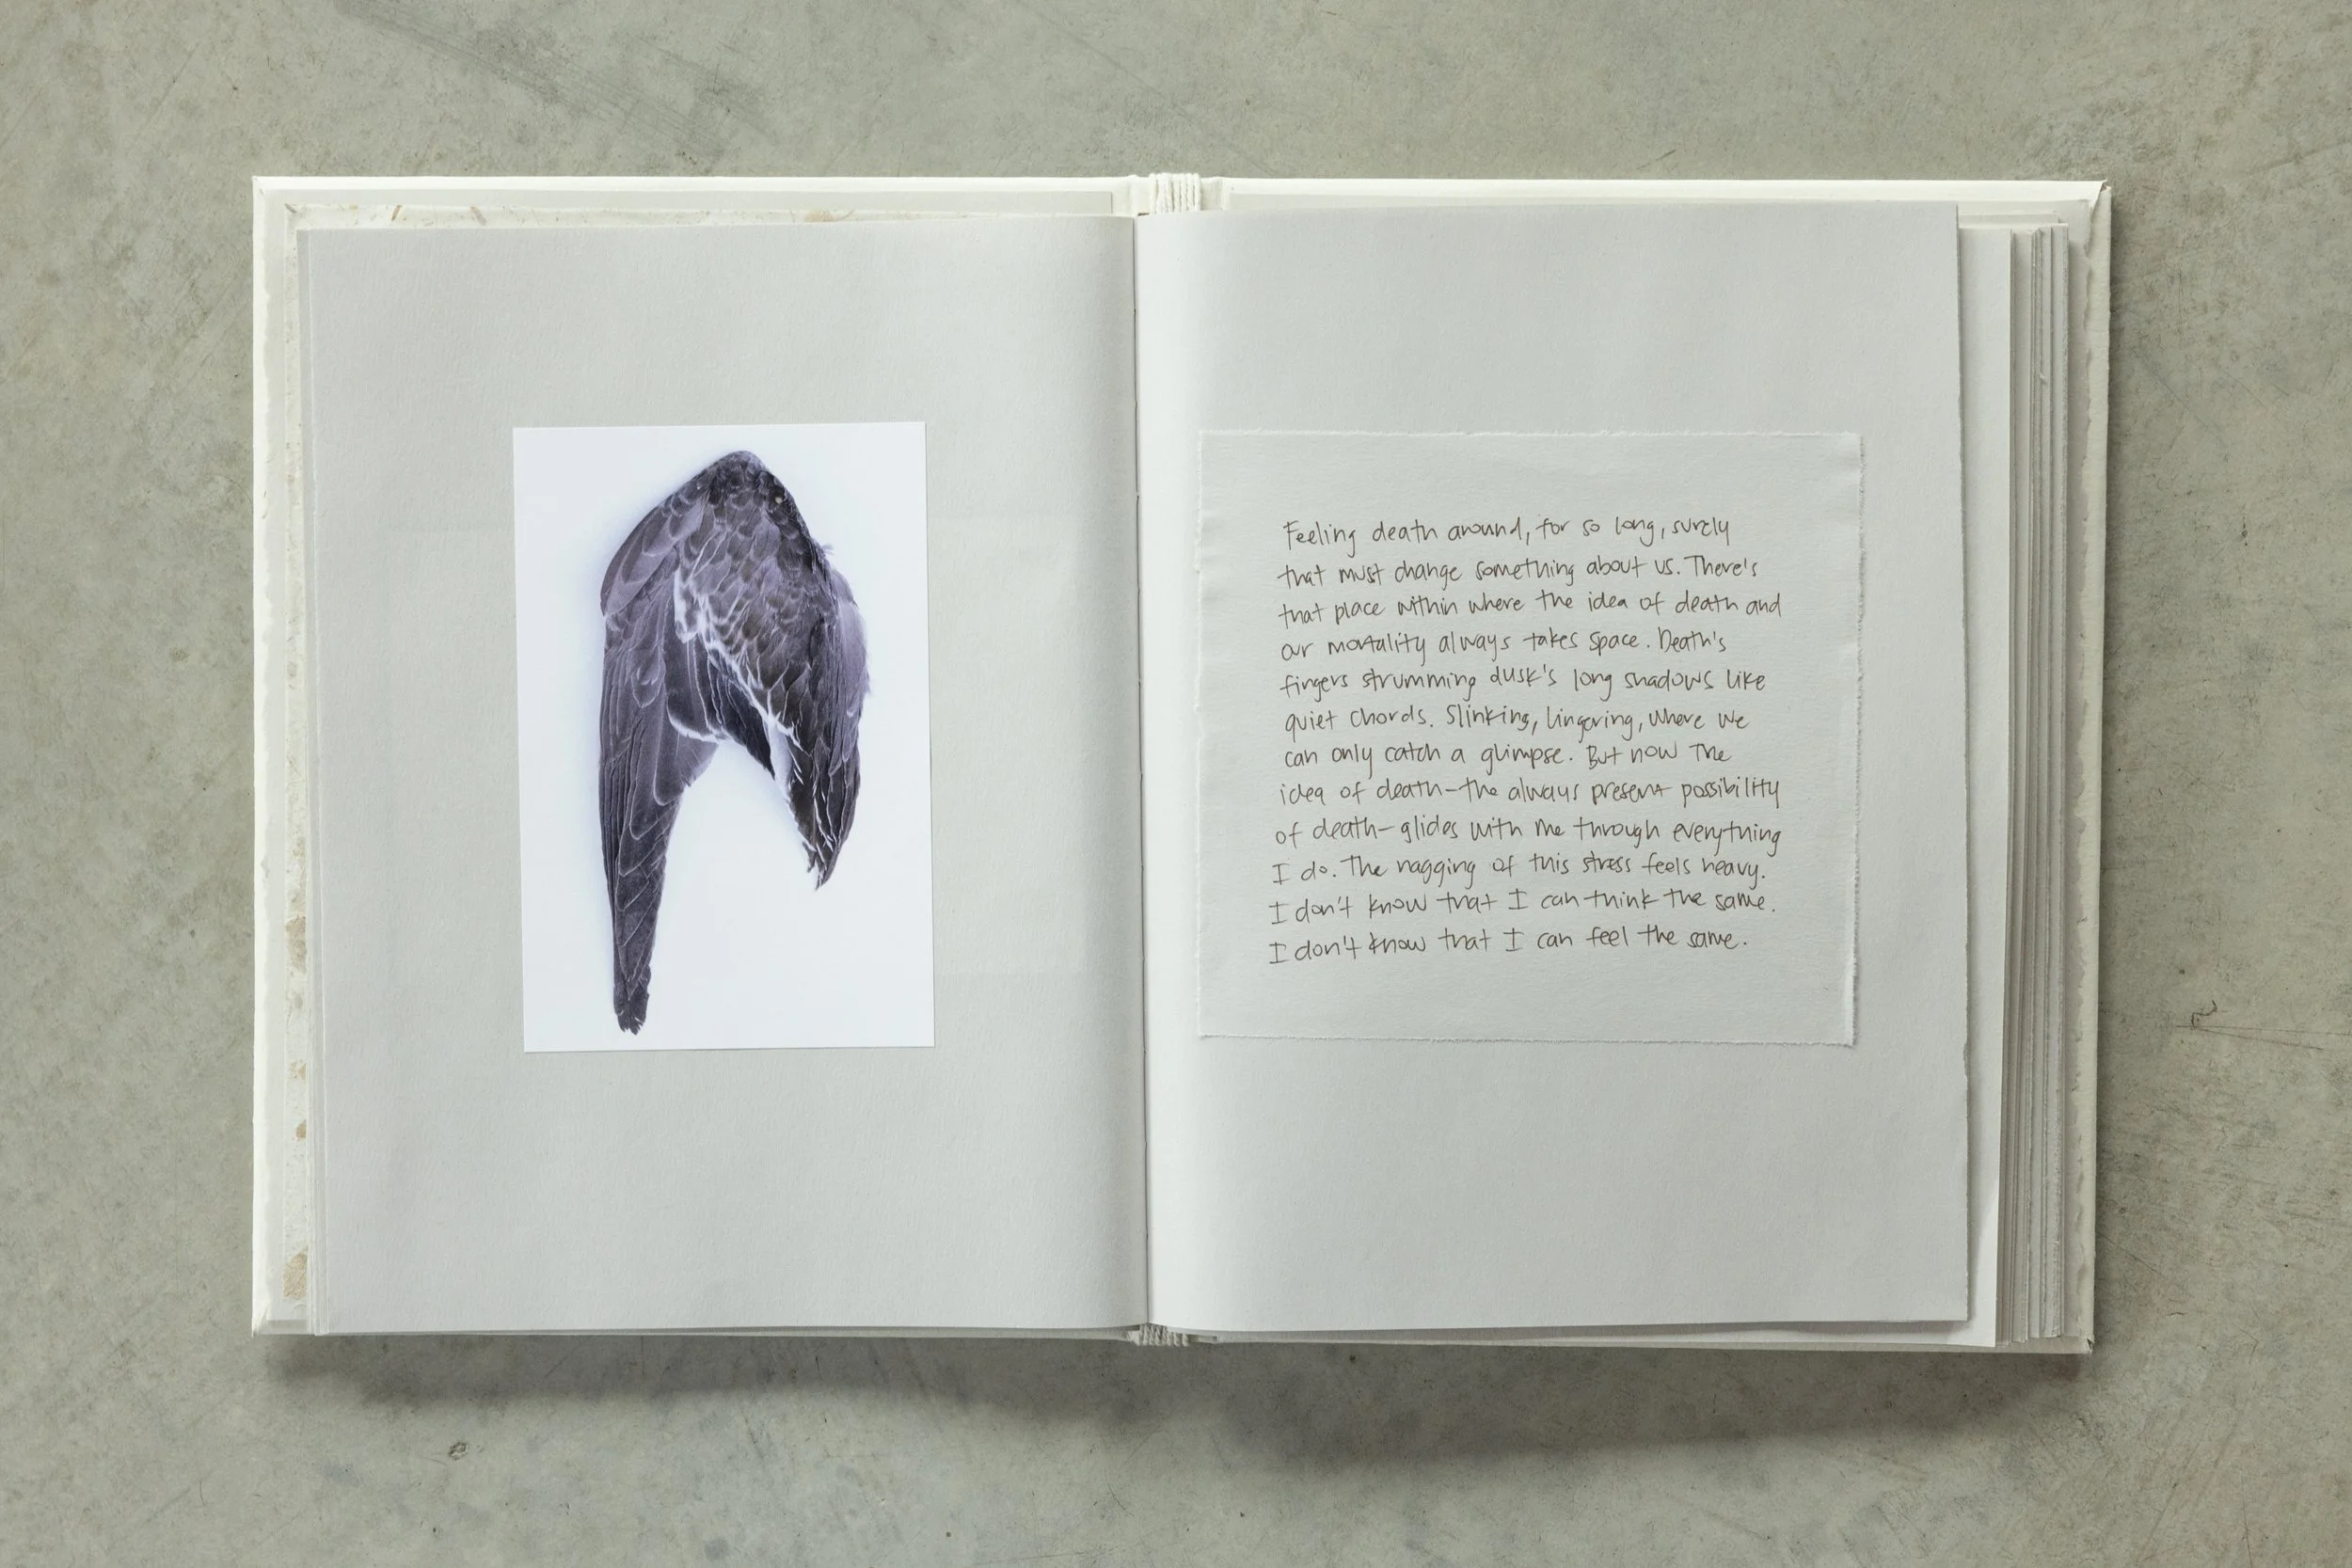 Feeling death around, for so long, surely
that must change something about us. There's
that place within where the idea of death and
our mortality always takes space. Death's
fingers strumming dusk's long shadows like
quiet chords. Slinking, lingering, where we
can only catch a glimpse. But now the
idea of death—the always present possibility
of death—glides with me through everything
I do. The nagging of this stress feels heavy.
I don't know that I can think the same.
I don't know that I can feel the same.